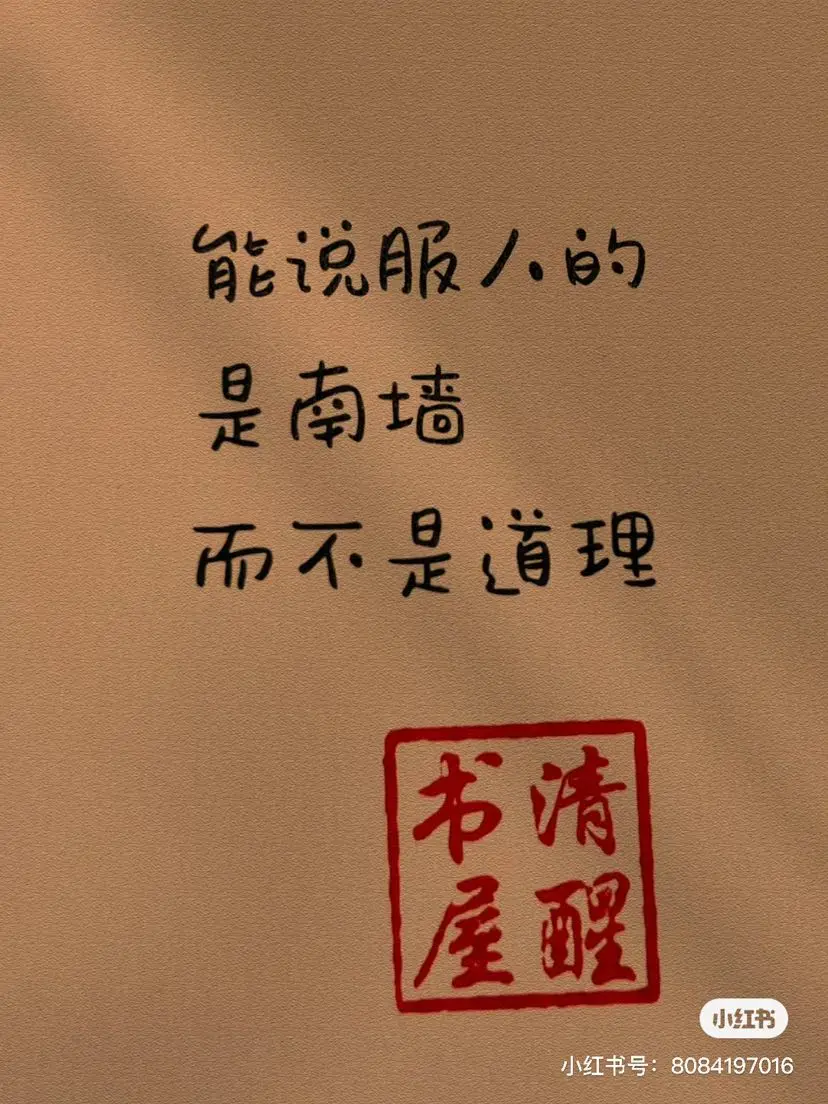 能说服人的
是南墙
而不是道理
清醒
书屋
小红书
小红书号：8084197016